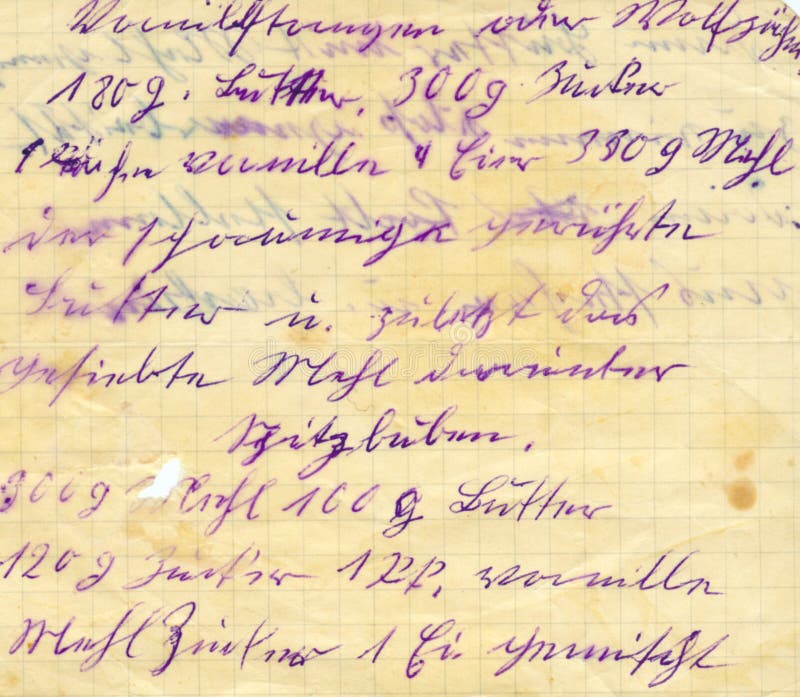 Vanillstangen oder Wolfzähne
180g. Butter, 300g Zucker
vanille 4 Eier 380 g Mehl
der schaumige gerührte
Butter u. zuletzt das
gesiebte Mehl darunter
Spitzbuben.
300g Mehl 100 g Butter
120 g Zucker 1 vanille
Mehl Zucker 1 Ei gemischt